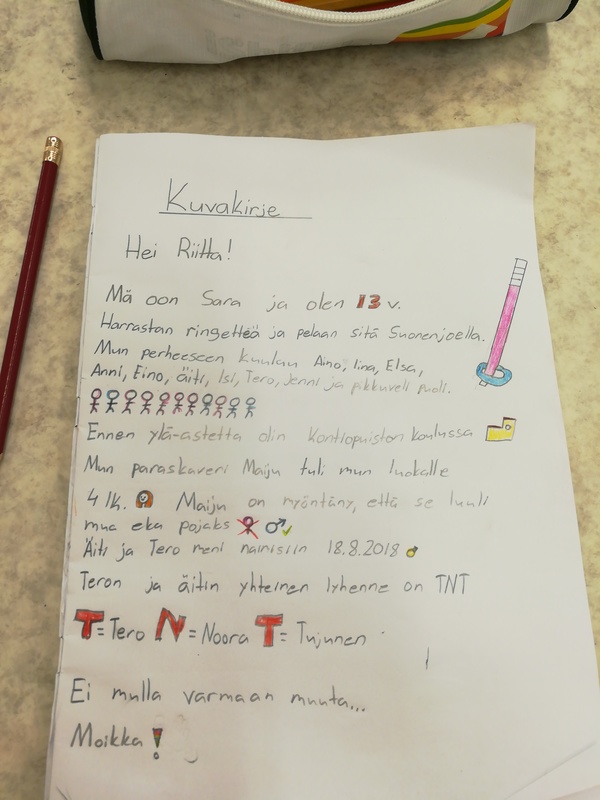 Kuvakirje
Hei Riitta!
Mä oon Sara ja olen 13 v.
Harrastan ringetteä ja pelaan sitä Suonenjoella.
Mun perheeseen kuuluu Aino, Iina, Elsa,
Anni, Eino, äiti, Isi, Tero, Jenni ja pikkuveli puoli.
Ennen ylä-astetta olin Kontiopuiston koulussa
Mun paraskaveri Maiju tuli mun luokalle
4 lk. Maiju on myöntäny, että se luuli
mua eka pojaks
Äiti ja Tero meni naimisiin 18.8.2018
Teron ja äitin yhteinen lyhenne on TNT
T=Tero N=Noora T=Tujunen
Ei mulla varmaan muuta...
Moikka!